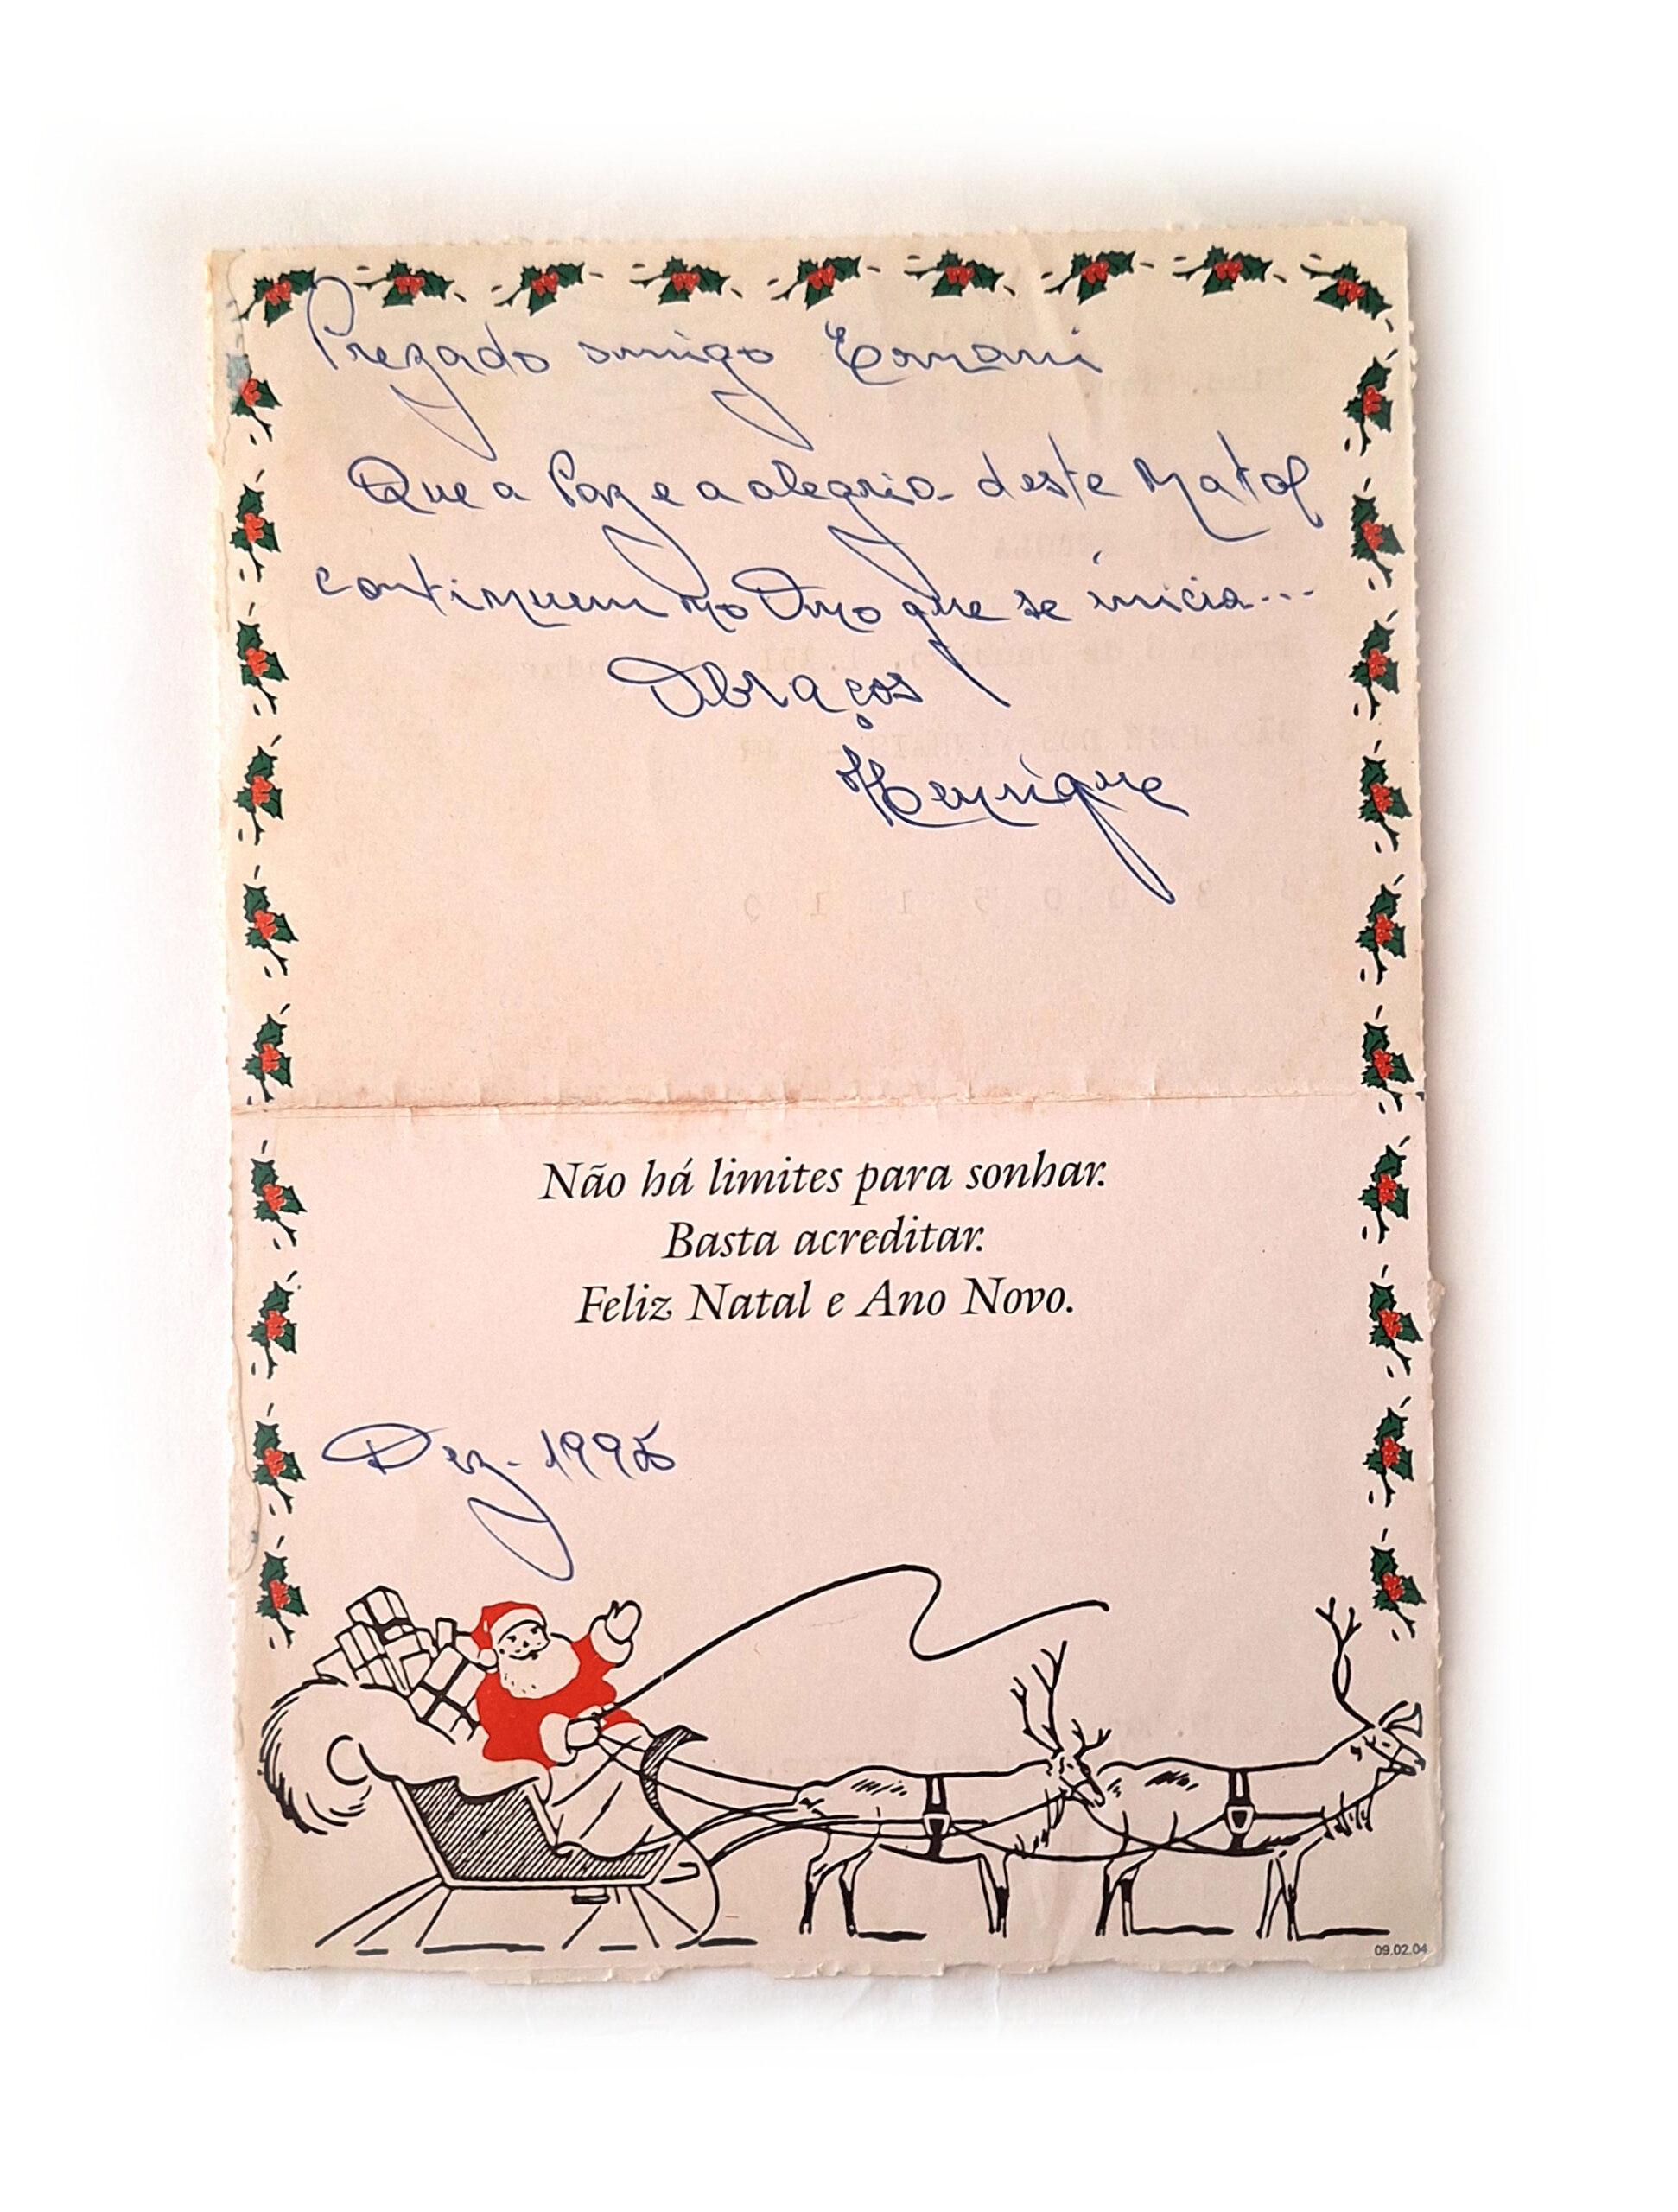 Prezado amigo Ernani
Que a Paz e a alegria deste Natal
continuem no Ano que se inicia...
Abraços
Henrique
Não há limites para sonhar.
Basta acreditar.
Feliz Natal e Ano Novo.
Dez. 1995
09.02.04